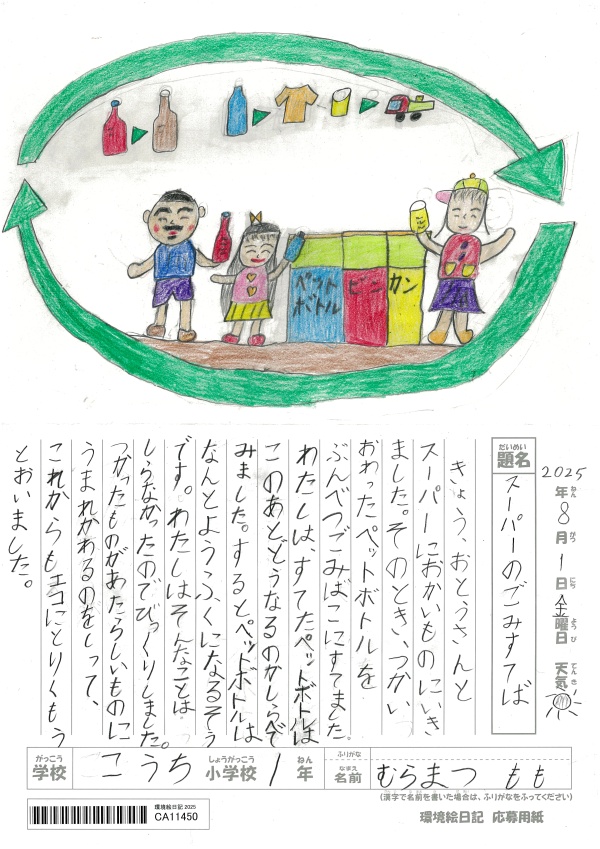 ペット
ボトル
ビン
カン
2025年8月1日金曜日 天気
ねん
がつ
にち
ようび
てんき
だいめい
題名
スーパーのごみすてば
きょう、おとうさんと
スーパーにおかいものにいき
ました。そのとき、つかい
おわったペットボトルを
ぶんべつごみばこにすてました。
わたしは、すてたペットボトルは
このあとどうなるのかしらべて
みました。するとペットボトルは
なんとようふくになるそう
です。わたしはそんなことは
しらなかったのでびっくりしました。
つかったものがあたらしいものに
うまれかわるのをしって、
これからもエコにとりくもう
とおいました。
がっこう
学校
こうち
しょうがっこう
小学校
1
ねん
年
ふりがな
なまえ
名前
むらまつ もも
(漢字で名前を書いた場合は、ふりがなをふってください)
環境絵日記 2025
CA11450
環境絵日記 応募用紙